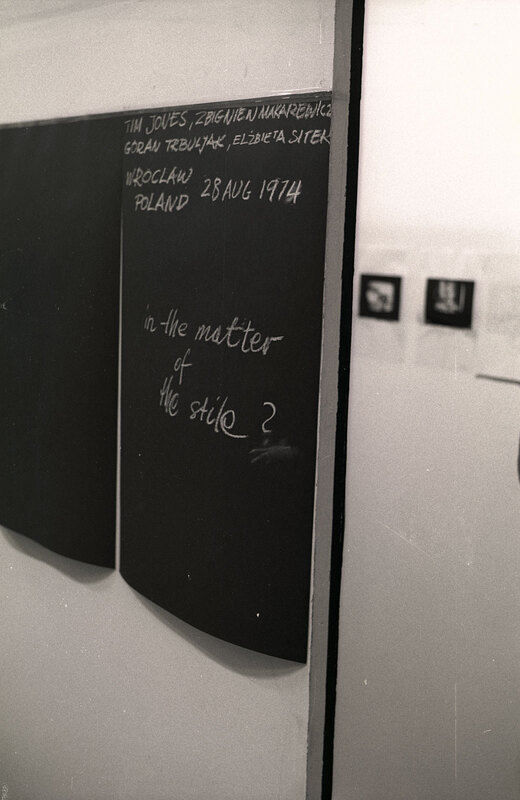 TIM JONES, ZBIGNIEW MAKAREWICZ
GORAN TRBULJAK, ELŻBIETA SITEK
WROCLAW
POLAND 28 AUG 1974
in the matter
of
the stile ?